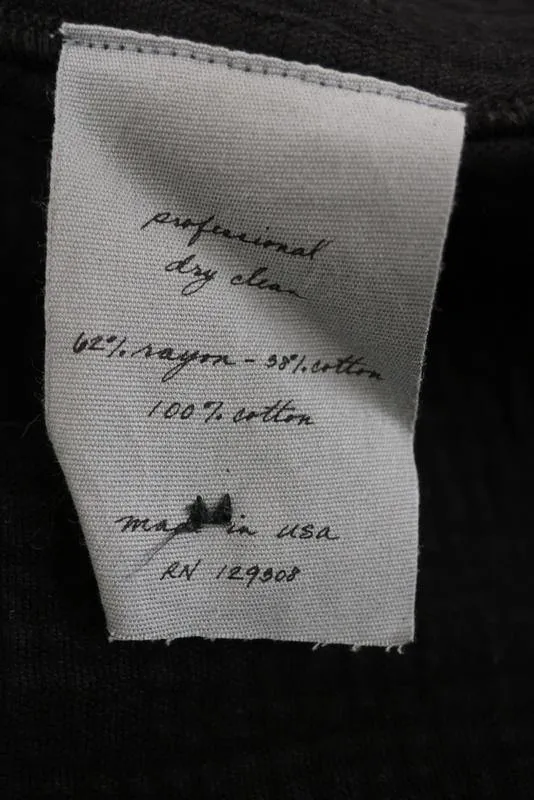 professional
dry clean
62% rayon - 38% cotton
100% cotton
made in usa
RN 129308